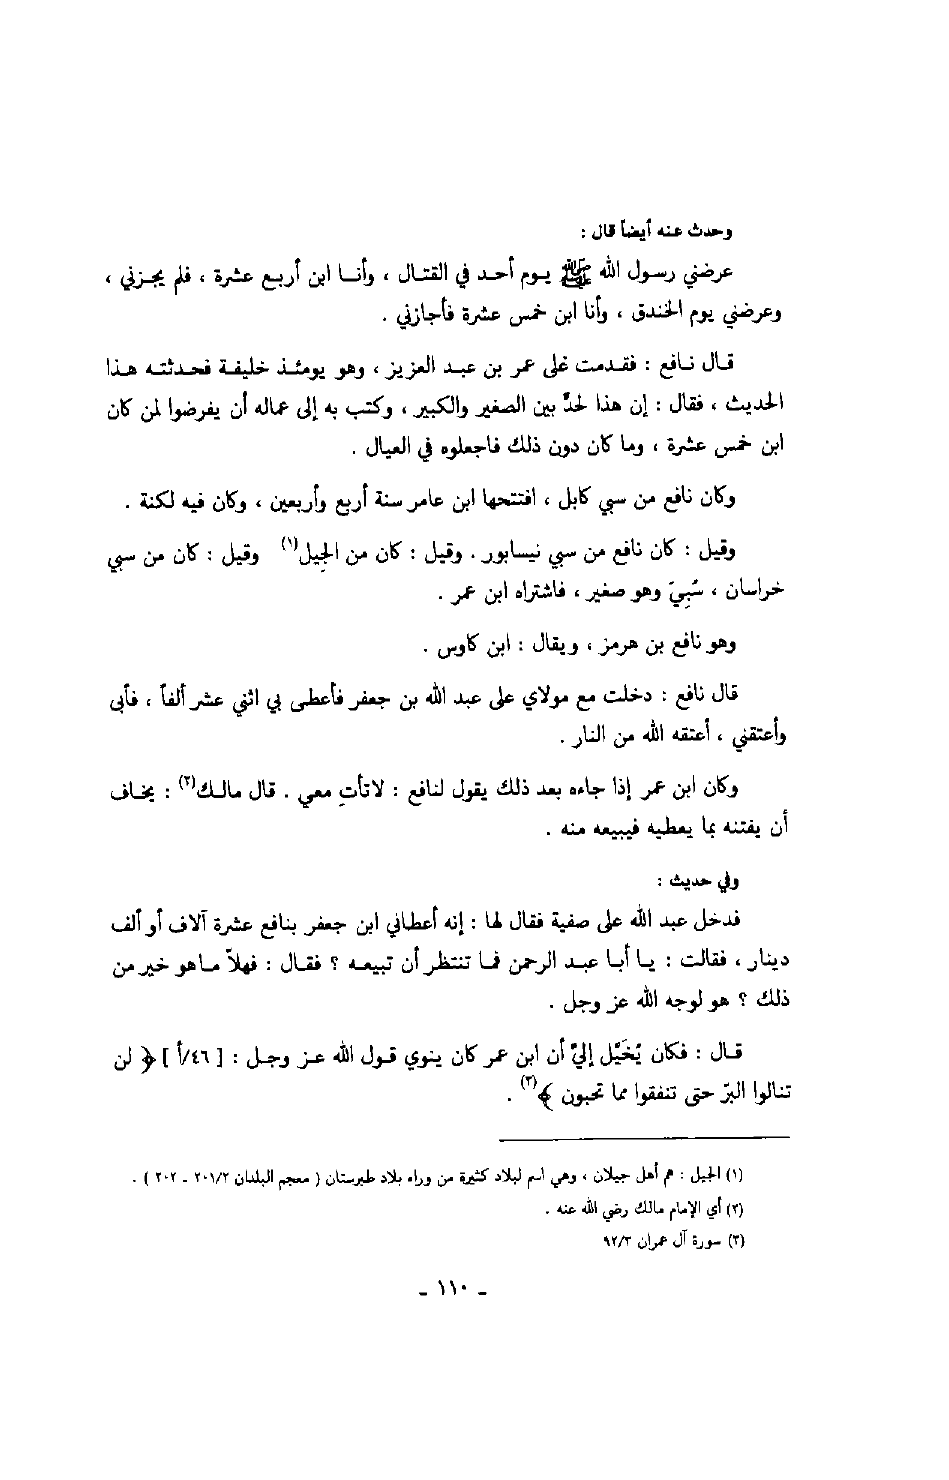 وحدث عنه أيضاً قال :
عرضني رسول الله ﷺ يـوم أحـد في القتـال ، وأنـا ابن أربـع عشـرة ، فلم يجـزني ،
وعرضني يوم الخندق ، وأنا ابن خمس عشرة فأجازني .
قـال نافع : فقـدمت على عمر بن عبـد العزيز ، وهو يومئـذ خليفـة فحدثتـه هـذا
الحديث ، فقال : إن هذا لحدٌّ بين الصغير والكبير ، وكتب به إلى عماله أن يفرضوا لمن كان
ابن خمس عشرة ، وما كان دون ذلك فاجعلوه في العيال .
وكان نافع من سبي كابل ، افتتحها ابن عامر سنة أربع وأربعين ، وكان فيه لكنة .
وقيل : كان نافع من سبي نيسابور . وقيل : كان من الجيل(١) وقيل : كان من سبي
خراسان ، سُبِيَ وهو صغير ، فاشتراه ابن عمر .
وهو نافع بن هرمز ، ويقال : ابن كاوس .
قال نافع : دخلت مع مولاي على عبد الله بن جعفر فأعطى بي اثني عشر ألفاً ، فأبى
وأعتقني ، أعتقه الله من النار .
وكان ابن عمر إذا جاءه بعد ذلك يقول لنافع : لاتأتِ معي . قال مالـك(٢) : يخـاف
أن يفتنه بما يعطيه فيبيعه منه .
وفي حديث :
فدخل عبد الله على صفية فقال لها : إنه أعطاني ابن جعفر بنافع عشرة آلاف أو ألف
دينار ، فقالت : يـا أبـا عبـد الرحمن فمـا تنتظر أن تبيعـه ؟ فقـال : فهلاّ مـاهو خير من
ذلك ؟ هو لوجه الله عز وجل .
قـال : فكان يُخَيَّل إليّ أن ابن عمر كان ينوي قـول الله عـز وجـل : [ ٤٦/أ ] ﴿ لن
تنالوا البرّ حتى تنفقوا مما تحبون ﴾(٣) .
(١) الجيل : هم أهل جيلان ، وهي اسم لبلاد كثيرة من وراء بلاد طبرستان ( معجم البلدان ٢٠١/٢ ـ ٢٠٢ ) .
(٢) أي الإمام مالك رضي الله عنه .
(٣) سورة آل عمران ٩٢/٣
ـ ١١٠ ـ